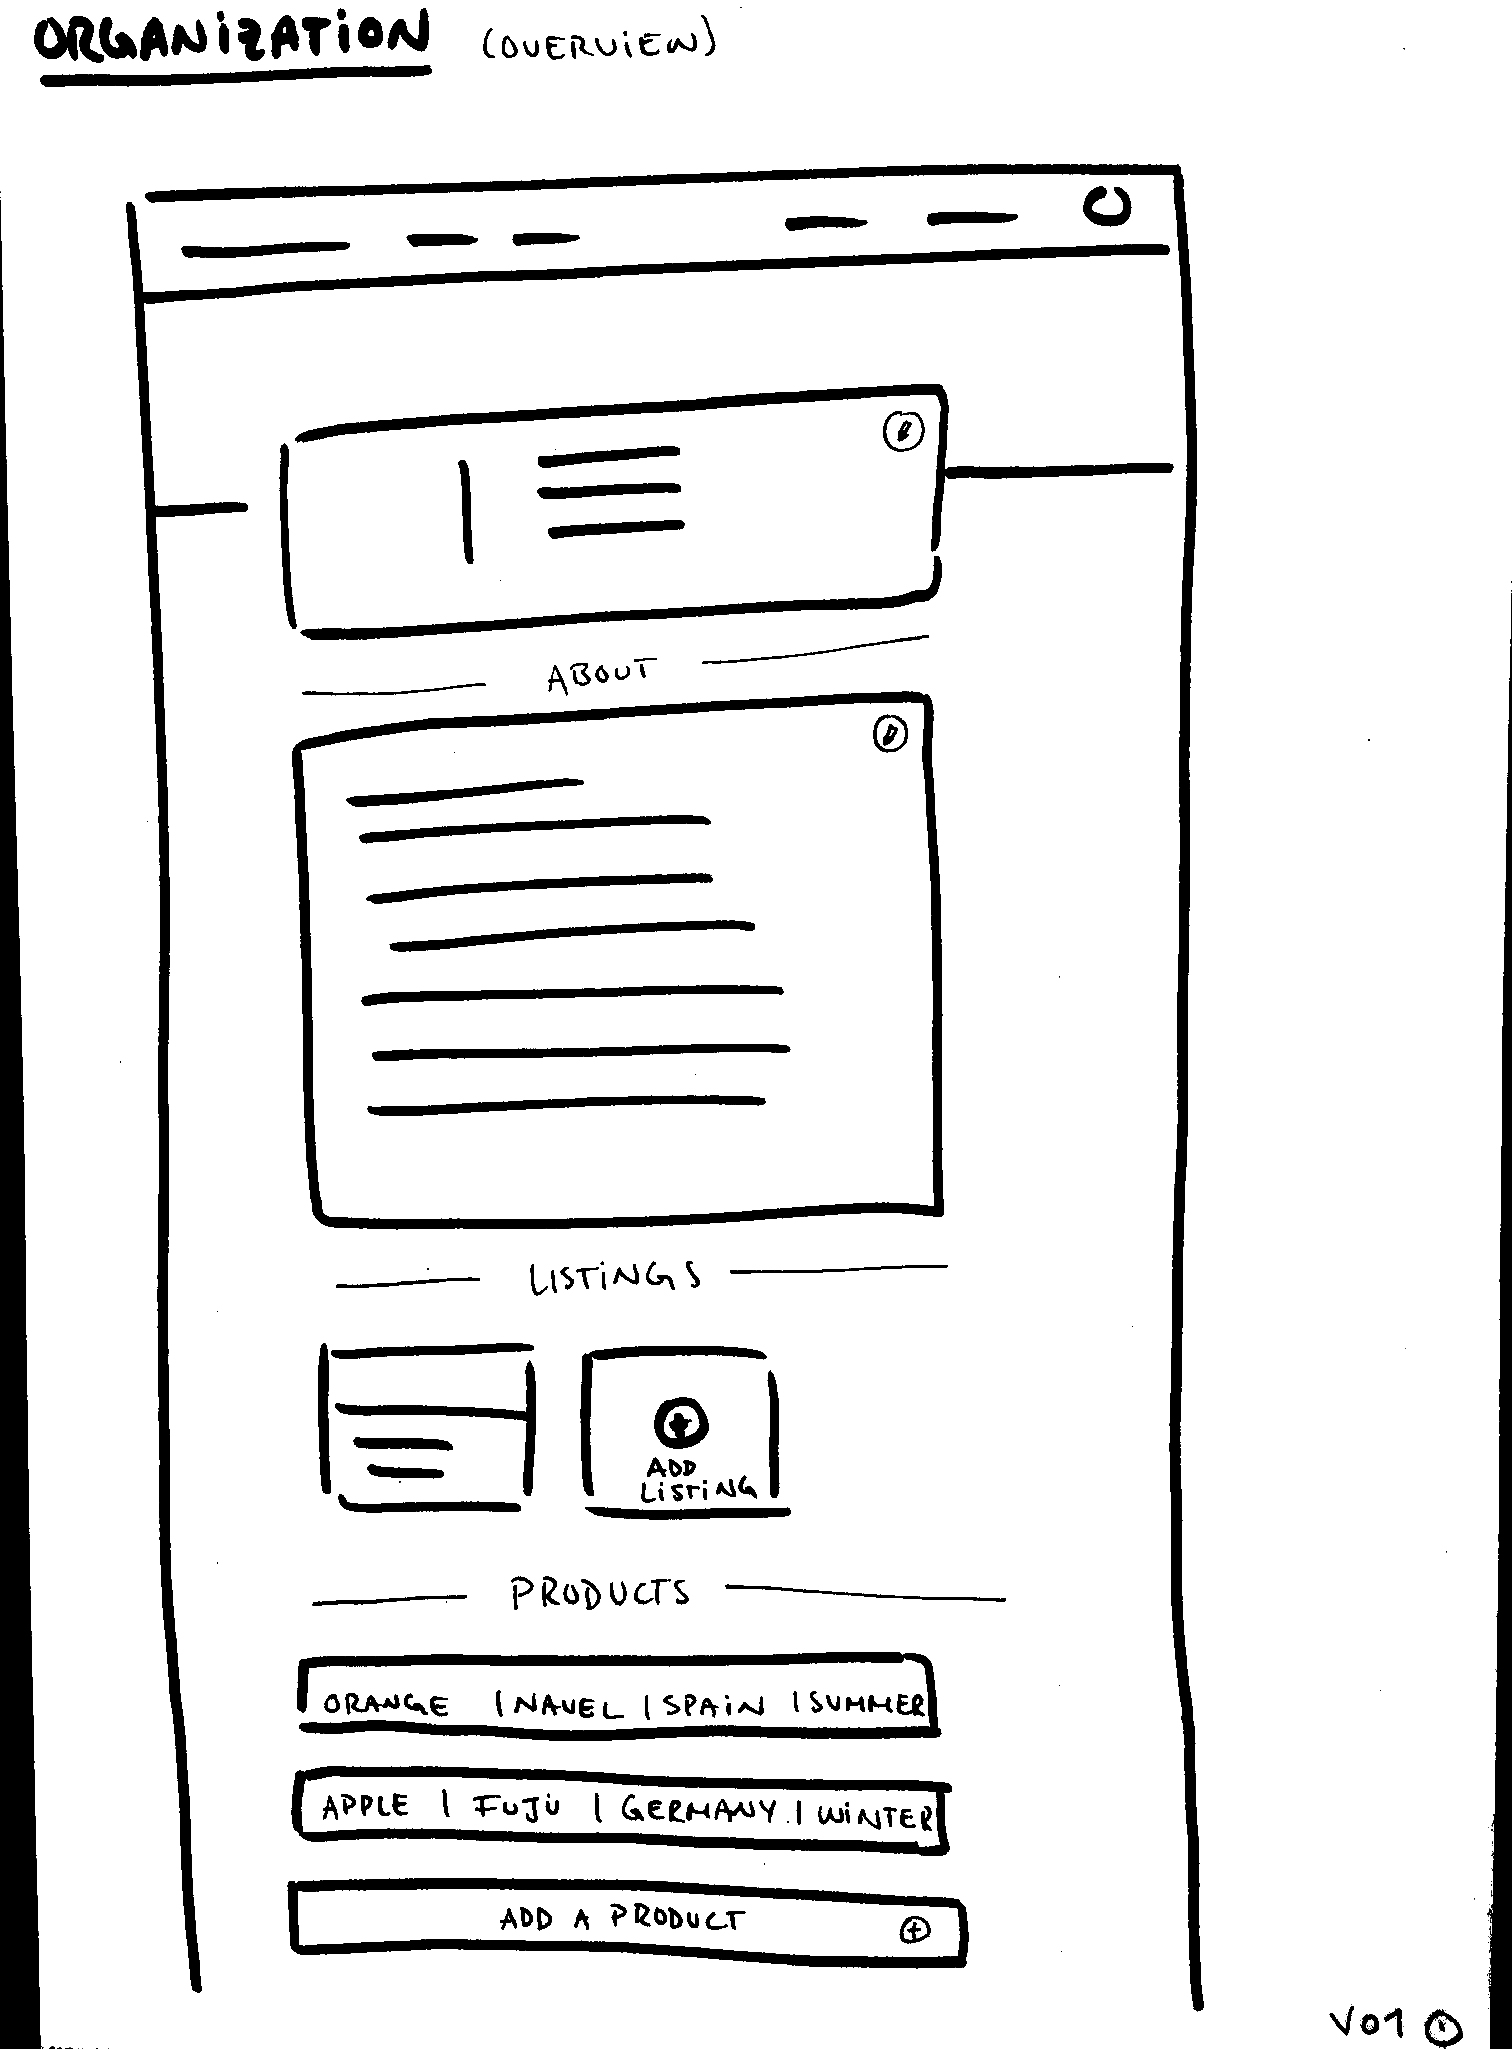 ORGANiZATiON (OVERViEW)
ABOUT
LISTiNGS
ADD
LiSTiNG
PRODUCTS
ORANGE | NAVEL | SPAiN | SUMMER
APPLE | FUJU | GERMANY. | WiNTER
ADD A PRODUCT
V01